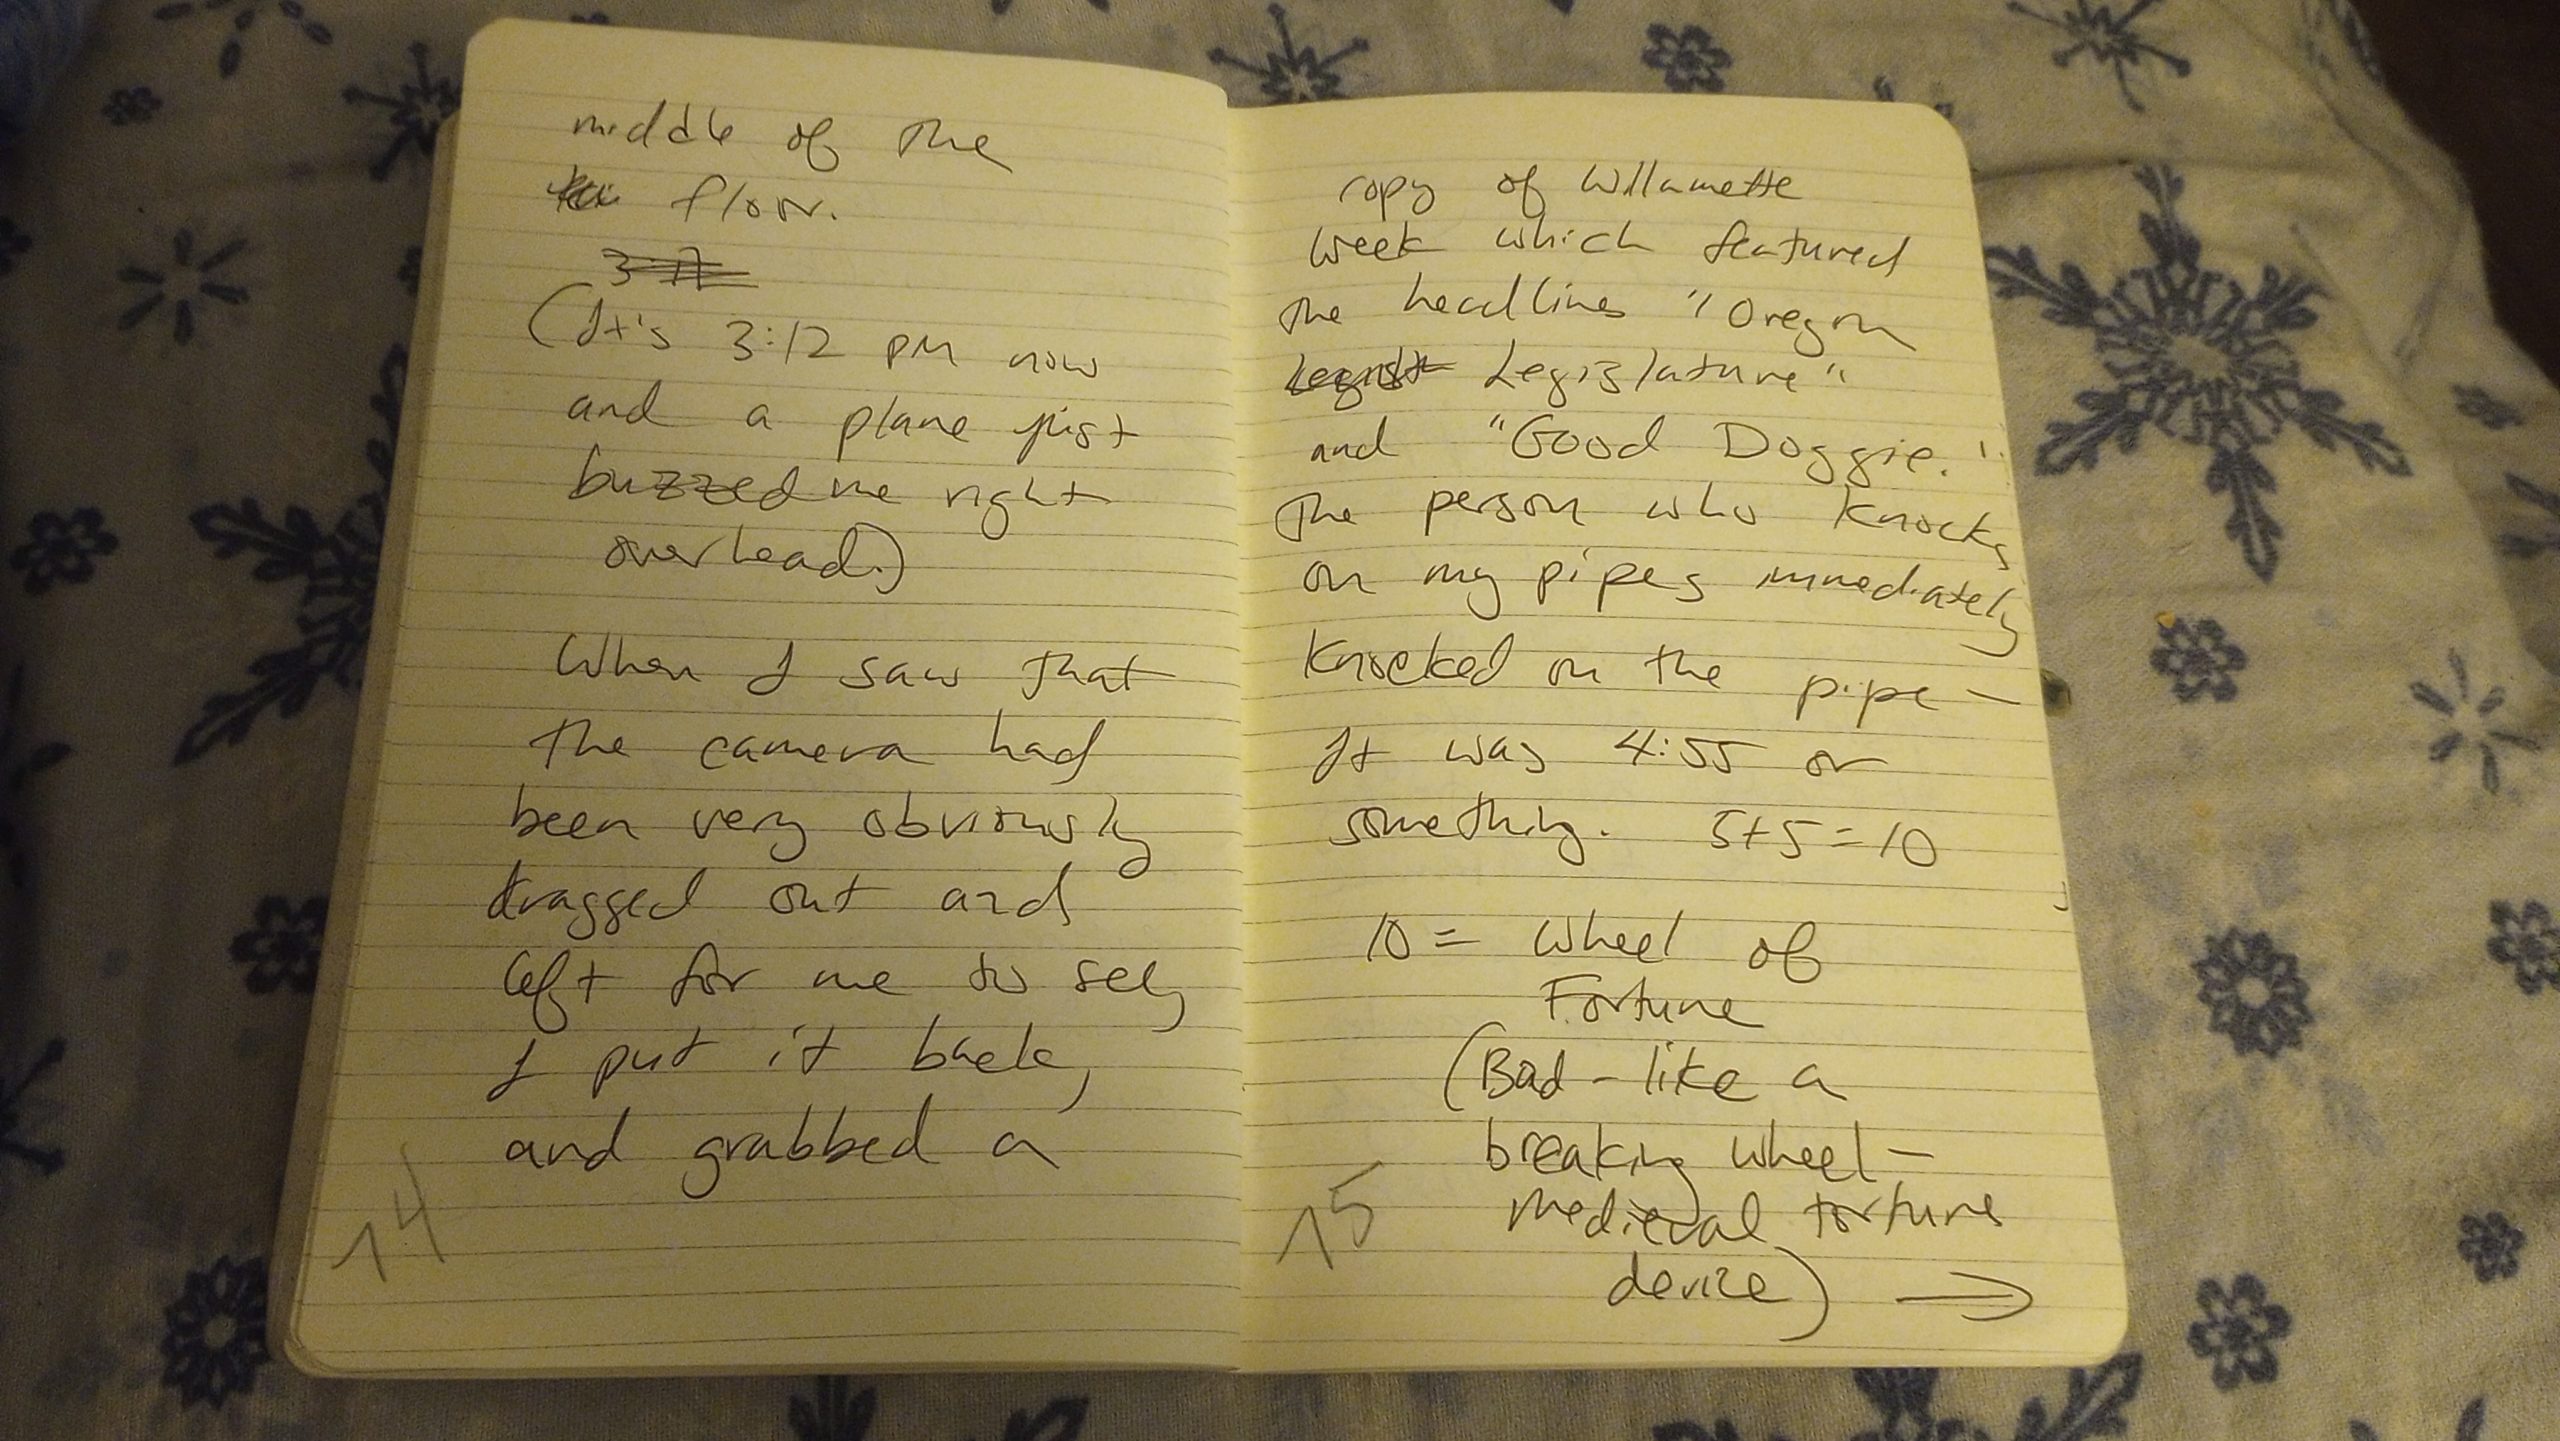 middle of the
floor.
3:17
(It's 3:12 pm now
and a plane just
buzzed me right
overhead.)
When I saw that
the camera had
been very obviously
dragged out and
left for me to see,
I put it back,
and grabbed a
14
copy of Willamette
Week which featured
the headlines "Oregon
Legist Legislature"
and "Good Doggie."
The person who knocks
on my pipes immediately
knocked on the pipe –
It was 4:55 or
something. 5+5=10
10 = Wheel of
Fortune
(Bad – like a
breaking wheel –
medieval torture
device) →
15